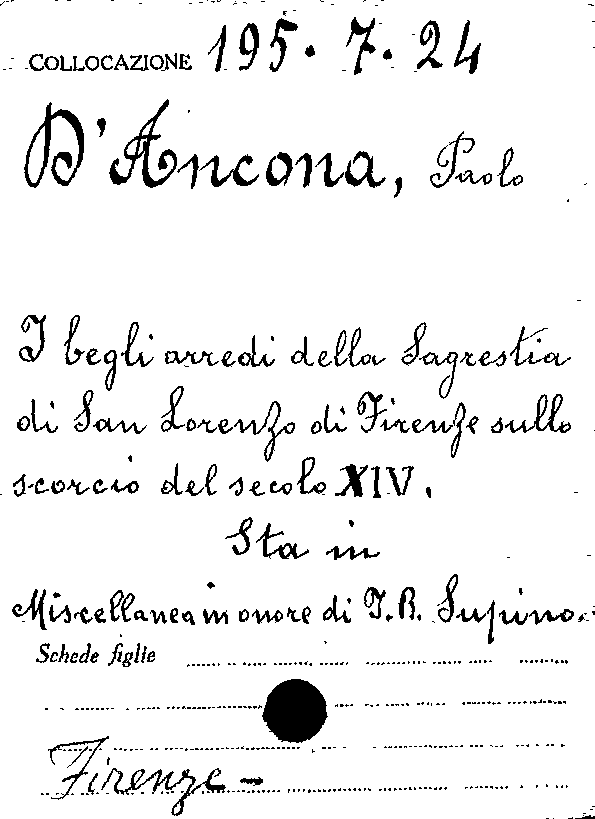 COLLOCAZIONE 195.7.24
D'Ancona, Paolo
I begli arredi della Sagrestia
di San Lorenzo di Firenze sullo
scorcio del secolo XIV.
Sta in
Miscellanea in onore di I. B. Supino.
Schede figlie
Firenze -